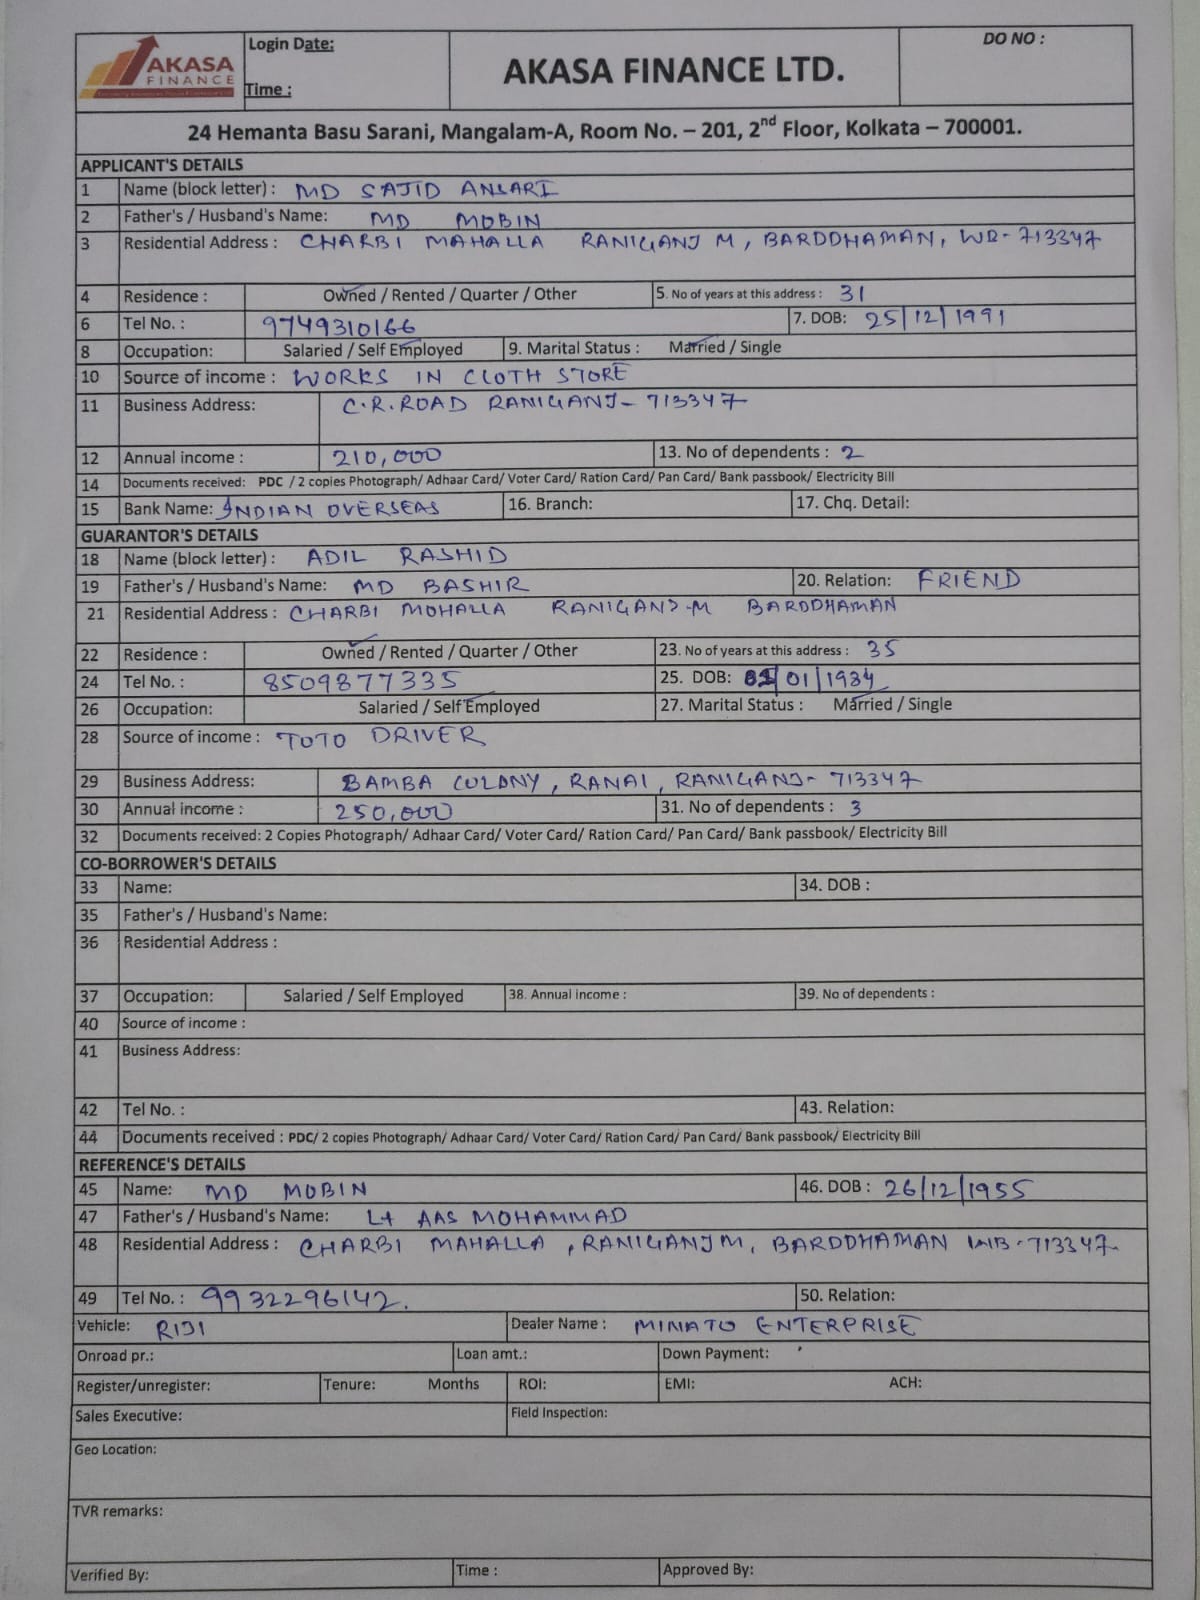 AKASA FINANCE
Login Date:
Time :
AKASA FINANCE LTD.
DO NO :
24 Hemanta Basu Sarani, Mangalam-A, Room No. – 201, 2nd Floor, Kolkata – 700001.
APPLICANT'S DETAILS
1 Name (block letter) : MD SAJID ANSARI
2 Father's / Husband's Name: MD MOBIN
3 Residential Address : CHARBI MAHALLA RANIGANJ M, BARDDHAMAN, WB- 713347
4 Residence : Owned / Rented / Quarter / Other 5. No of years at this address : 31
6 Tel No. : 9749310166 7. DOB: 25/12/1991
8 Occupation: Salaried / Self Employed 9. Marital Status : Married / Single
10 Source of income : WORKS IN CLOTH STORE
11 Business Address: C.R.ROAD RANIGANJ- 713347
12 Annual income : 210,000 13. No of dependents : 2
14 Documents received: PDC / 2 copies Photograph/ Adhaar Card/ Voter Card/ Ration Card/ Pan Card/ Bank passbook/ Electricity Bill
15 Bank Name: INDIAN OVERSEAS 16. Branch: 17. Chq. Detail:
GUARANTOR'S DETAILS
18 Name (block letter) : ADIL RASHID
19 Father's / Husband's Name: MD BASHIR 20. Relation: FRIEND
21 Residential Address : CHARBI MOHALLA RANIGANJ-M BARDDHAMAN
22 Residence : Owned / Rented / Quarter / Other 23. No of years at this address : 35
24 Tel No. : 8509877335 25. DOB: /01/1984
26 Occupation: Salaried / Self Employed 27. Marital Status : Married / Single
28 Source of income : TOTO DRIVER
29 Business Address: BAMBA COLONY, RANAI, RANIGANJ- 713347
30 Annual income : 250,000 31. No of dependents : 3
32 Documents received: 2 Copies Photograph/ Adhaar Card/ Voter Card/ Ration Card/ Pan Card/ Bank passbook/ Electricity Bill
CO-BORROWER'S DETAILS
33 Name: 34. DOB :
35 Father's / Husband's Name:
36 Residential Address :
37 Occupation: Salaried / Self Employed 38. Annual income : 39. No of dependents :
40 Source of income :
41 Business Address:
42 Tel No. : 43. Relation:
44 Documents received : PDC/ 2 copies Photograph/ Adhaar Card/ Voter Card/ Ration Card/ Pan Card/ Bank passbook/ Electricity Bill
REFERENCE'S DETAILS
45 Name: MD MOBIN 46. DOB : 26/12/1955
47 Father's / Husband's Name: Lt AAS MOHAMMAD
48 Residential Address : CHARBI MAHALLA, RANIGANJ M, BARDDHAMAN WB-713347
49 Tel No. : 9932296142. 50. Relation:
Vehicle: RIJI Dealer Name : MINATO ENTERPRISE
Onroad pr.: Loan amt.: Down Payment:
Register/unregister: Tenure: Months ROI: EMI: ACH:
Sales Executive: Field Inspection:
Geo Location:
TVR remarks:
Verified By: Time : Approved By: